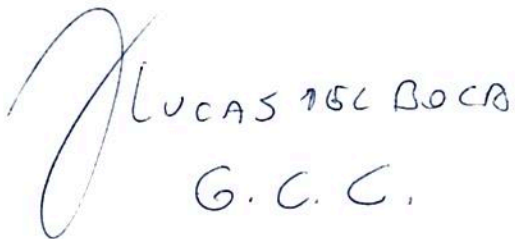 LUCAS DEL BOCA
G. C. C.